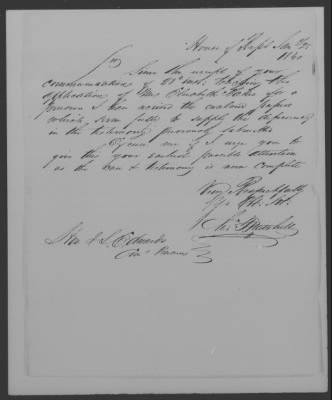 House of Reps Jan 25
1840
Sir
Since the receipt of your
communication of 21st inst. the
application of Mrs Elizabeth for a
pension I have received the enclosed papers
which, seem fully to supply the deficiency
in the testimony previously submitted
Excuse me if I urge you to
give this your earliest possible attention
as the case & testimony is now complete
Very Respectfully
Yr Obt. Svt.
Hon J. L. Edwards
Com Pensions